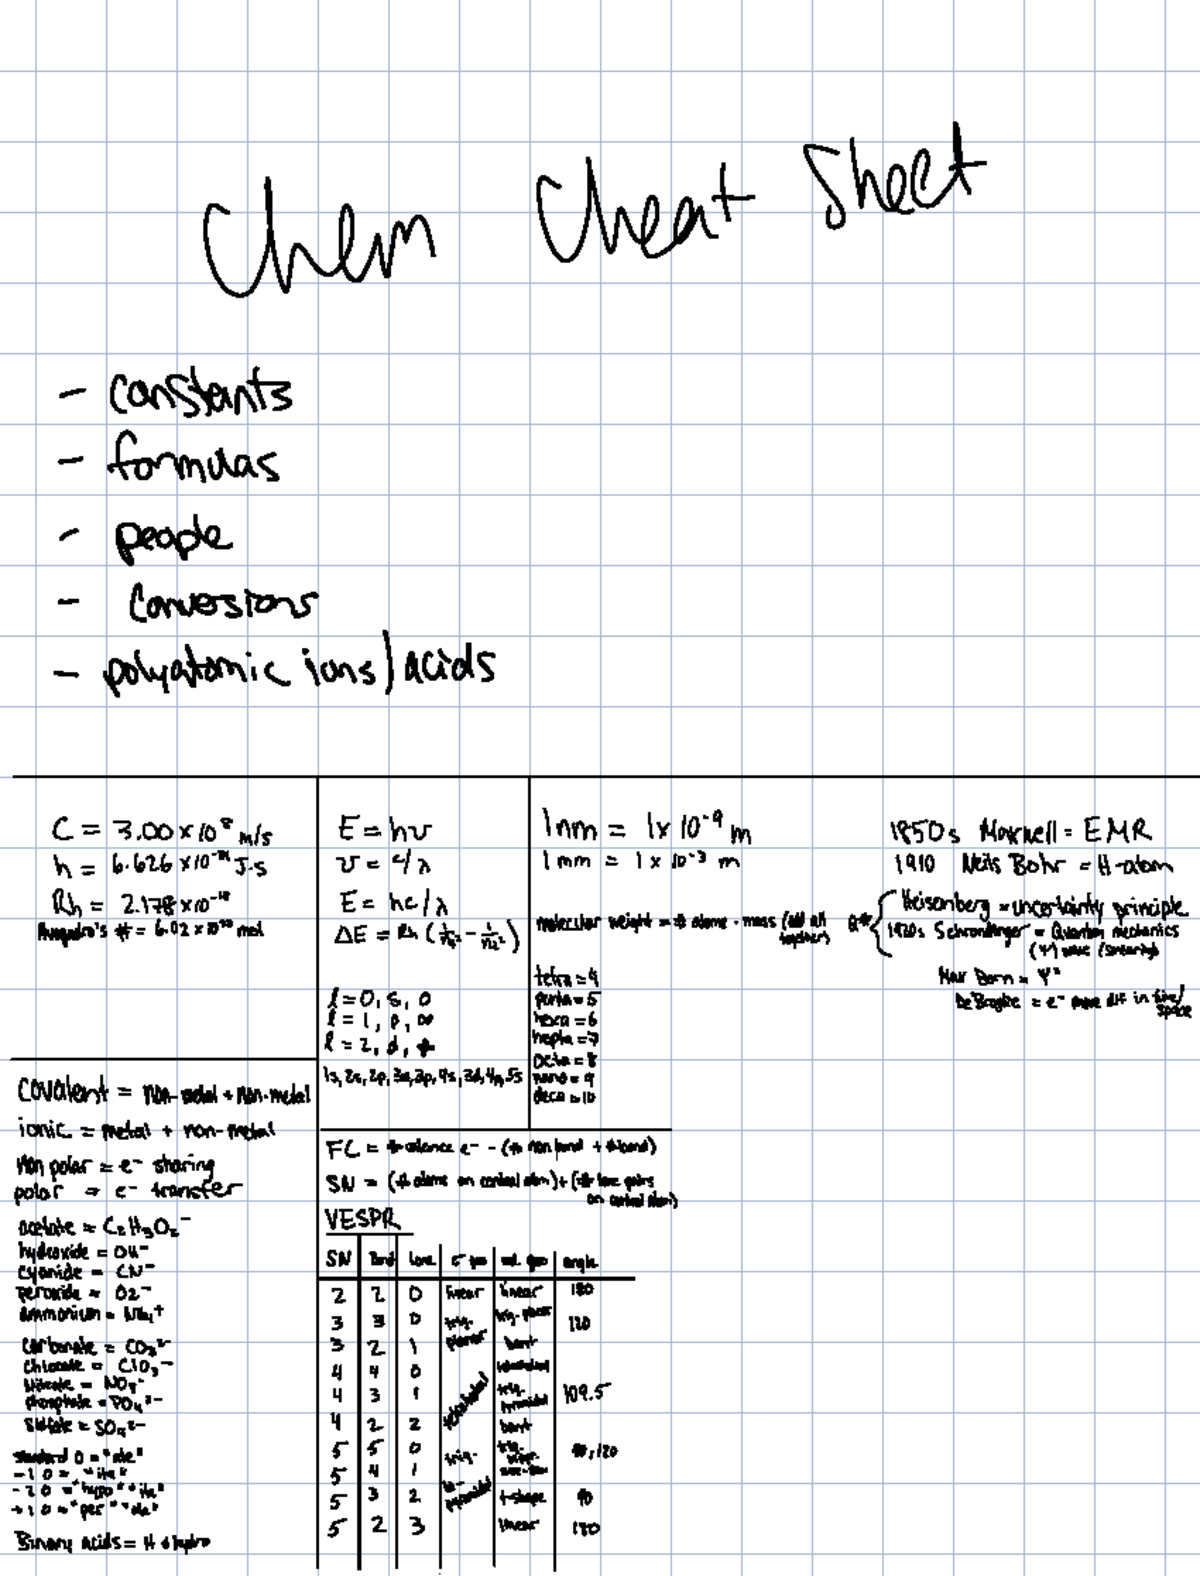 Chem Cheat Sheet
- constants
- formulas
- people
- conversions
- polyatomic ions/acids
C = 3.00 x 10⁸ m/s
h = 6.626 x 10⁻³⁴ J·s
Rh = 2.178 x 10⁻¹⁸
Avogadro's # = 6.02 x 10²³ mol
E = hν
ν = c/λ
E = hc/λ
ΔE = Rh (1/n² - 1/n²)
l = 0, s, 0
l = 1, p, ∞
l = 2, d,
1s, 2s, 2p, 3s, 3p, 4s, 3d, 4p, 5s
1nm = 1x 10⁻⁹ m
1mm = 1 x 10⁻³ m
molecular weight = # atoms · mass (add all together)
tetra = 4
penta = 5
hexa = 6
hepta = 7
octa = 8
nano = 9
deca = 10
1850s Maxwell = EMR
1910 Neils Bohr = H-atom
Heisenberg = uncertainty principle
1920s = Quantum mechanics
(Ψ) wave
Max Born = Ψ²
DeBroglie = e⁻ in time/space
covalent = non-metal + non-metal
ionic = metal + non-metal
non polar = e⁻ sharing
polar = e⁻ transfer
acetate = C₂H₃O₂⁻
hydroxide = OH⁻
cyanide = CN⁻
peroxide = O2⁻
ammonium = NH₄+
carbonate = CO₃²⁻
chlorate = ClO₃⁻
Nitrate = NO₃⁻
phosphate = PO₄³⁻
sulfate = SO₄²⁻
standard O = "ate"
-1 O = "ite"
-2 O = "hypo" + "ite"
+1 O = "per" "ate"
Binary acids = H + hydro
FC = # valence e⁻ - (# non bond + # bond)
SN = (# atoms on central atom) + (# lone pairs on central atom)
VESPR
SN Bond Lone geo geo angle
2 2 0 linear linear 180
3 3 0 trig. planar trig. planar 120
3 2 1 bent
4 4 0 tetrahedral tetrahedral
4 3 1 trig. pyramidal 109.5
4 2 2 bent
5 5 0 trig. bi-pyramidal trig. 90, 120
5 4 1 see-saw
5 3 2 t-shape 90
5 2 3 linear 180